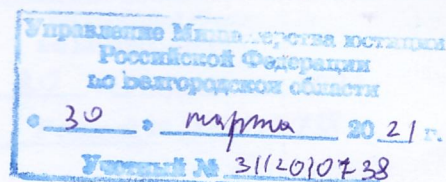 Управление Министерства юстиции
Российской Федерации
по Белгородской области
« 30 » марта 20 21 г.
Учетный № 3112010738